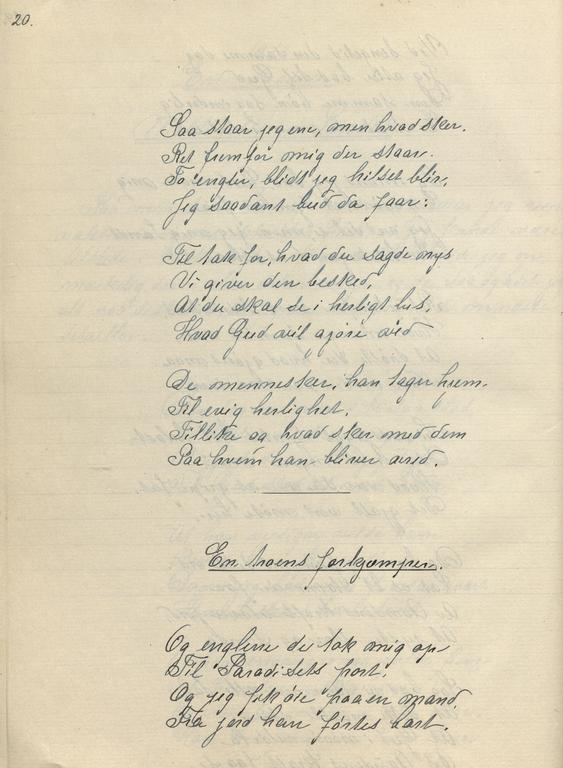 20.
Saa staar jeg ene, men hvad sker.
Ret fremfor mig der staar.
To engler, blidt jeg hilset blir,
Jeg saadant bud da faar:
Til tak for, hvad du sagde nys
Vi giver den besked,
At du skal se i herligt lys,
Hvad Gud vil gjøre ved
De mennesker, han tager hjem.
Til evig herlighet,
Tillike og hvad sker med dem
Paa hvem han bliver vred.
En troens forkjæmper.
Og englene de tok mig op
Til Paradisets port,
Og jeg fik øie paa en mand,
Fra jord han førtes bort.